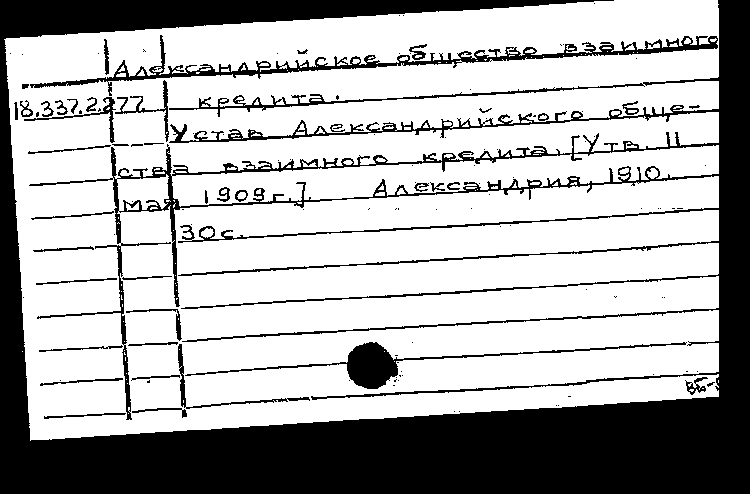 Александрийское общество взаимного
18.337.2.277. кредита.
Устав Александрийского обще-
ства взаимного кредита. [Утв. 11
мая 1909г.]. Александрия, 1910.
30с.